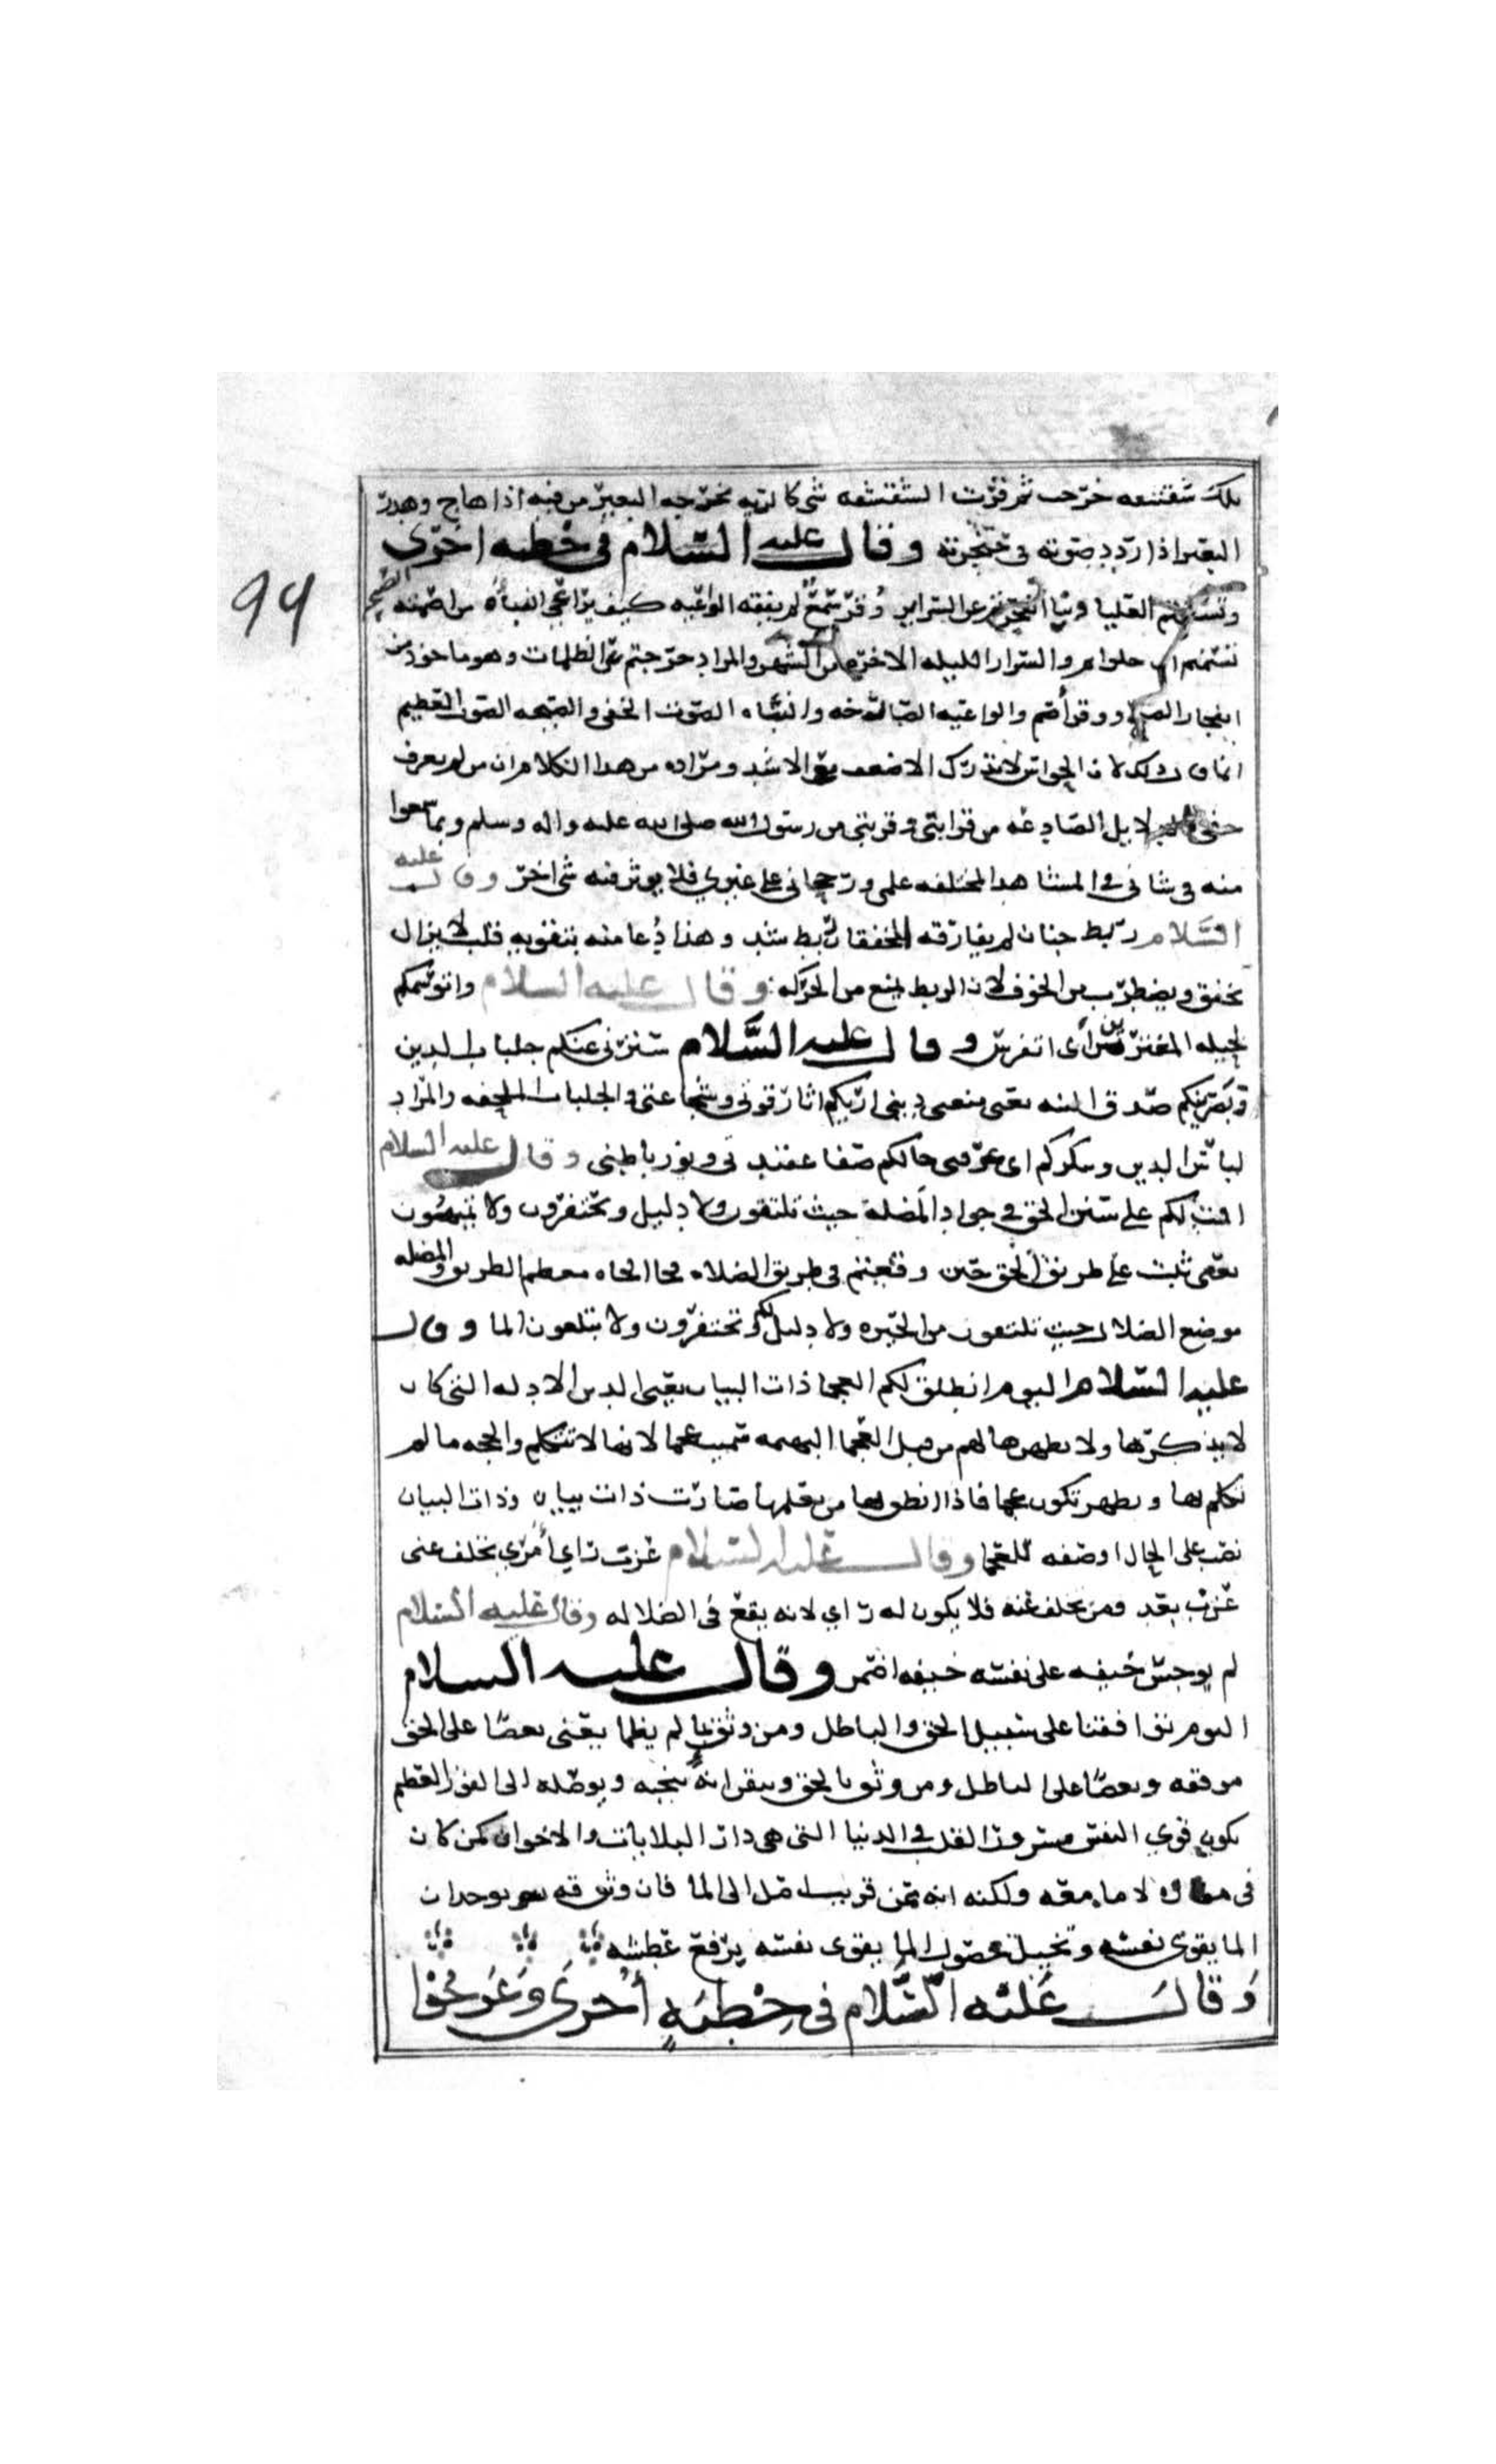 تلك شقشقه خرجت ثم قرّت الشقشقه شي كالريه يخرجه البعير من فيه اذا هاج وهدر
البعير اذا ردد صوته في حنجرته وقال عليه السّلام في خطبه اخرى
وتسنمتم العليا وبنا انفجرتم عن السرار وُقر سَمعٌ لم يفقه الواعيه كيف يراعي النبأه من اصمّته الصيحه
تسنمتم اي علوتم والسرار الليله الاخره من الشهر والمراد خرجتم من الظلمات وهو ماخوذ من
انفجار الصبح ووقر أصم والواعيه الصارخه والنباه الصوت الخفي والصيحه الصوت العظيم
انما قال ذلك لان الحواس لا تدرك الاضعف مع الاشد ومراده من هذا الكلام ان من لم يعرف
حقي بالدلايل الصادعه من قرابتي وقربتي من رسول الله صلى الله عليه واله وسلم وبما سمعوا
منه في شاني في المشاهد المختلفه علمي ورجحاني على غيري فلا يوثر فيه شي اخر وقال عليه
السَّلام ربط جنان لم يفارقه الخفقان ربط شد وهذا دُعا منه بتقويه قلب لا يزال
يخفق ويضطرب من الخوف لان الربط يمنع من الحركه وقال عليه السلام واتوسّمكم
بحيله المغترين اي اتفرس وقال عليه السَّلام سترني عنكم جلباب الدين
وبصّرنيكم صدق النيه يعني منعني ديني اريكم اثار قوتي وشجاعتي والجلباب الملحفه والمراد
لباس الدين وسكركم اي عرفني حالكم صفا عقيدتي ونور باطني وقال عليه السلام
اقمت لكم على سنن الحق في جواد المضلة حيث تلتقون ولا دليل وتحتفرون ولا تميهُون
يعني ثبت على طريق الحق حين وقعتم في طريق الضلاله الجاده معظم الطريق والمضله
موضع الضلال حيث تلتقون من الحيره ولا دليل لكم وتحتفرون ولا تبلغون الما وقال
عليه السّلام اليوم انطلق لكم العجما ذات البيان يعني الدين الادله التي كان
لا يذكرها ولا يظهرها لهم من قبل العجما البهيمه سميت عجما لانها لا تتكلم والحجه ما لم
تكلم بها ويظهر تكون عجما فاذا انطق بها من يعلمها صارت ذات بيان وذات البيان
نصب على الحال او صفه للعجما وقال عليه السّلام عزب راي أمرَي تخلف عني
عزب بعد ومن تخلف عنه فلا يكون له راي لانه يقع في الضلاله وقال عليه السّلام
لم يوجس خيفه على نفسه خيفه اضمر وقال عليه السلام
اليوم تواقفنا على سبيل الحق والباطل ومن وثق بما لم يظما يعني بعضنا على الحق
موقفه وبعضنا على الباطل ومن وثق بالحق وتيقن انه ينجيه ويوصله الى الفوز العظيم
يكون قوي النفس مسرور القلب في الدنيا التي هي دار البلايات والاخوان كمن كان
في مفازه لا ما معه ولكنه انه عن قريب يصل الى الما فان وثوقه بوجدان
الما يقوي نفسه وتخيل حصول الما يقوي نفسه يرفع عطشه
وَقالَ عَليْه السَّلام في خِطْبَةٍ أُخْرَى